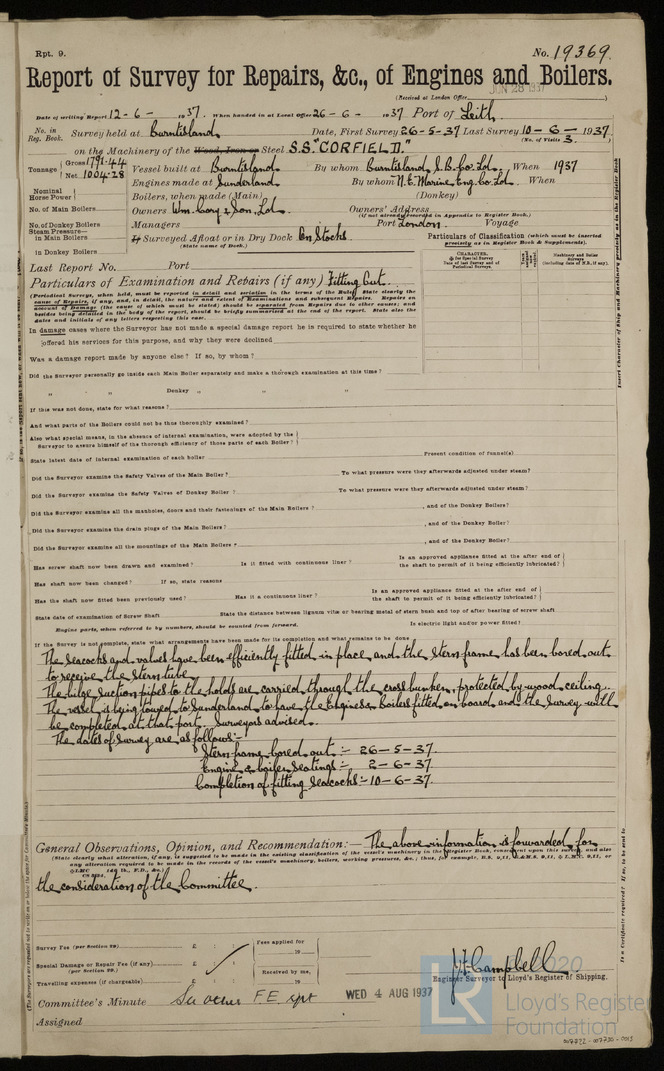 Rpt. 9.
No. 19369.
Report of Survey for Repairs, &c., of Engines and Boilers.
(Received at London Office JUN 28 1937)
Date of writing Report 12-6- 1937. When handed in at Local Office 26-6- 1937 Port of Leith.
No. in Reg. Book. Survey held at Burntisland Date, First Survey 26-5-37 Last Survey 10-6-1937
(No. of Visits 3.
on the Machinery of the Wood, Iron or Steel S.S. "CORFIELD II."
Tonnage Gross 1791.44 Net 1004.28
Vessel built at Burntisland By whom Burntisland S.B. Co. Ld. When 1937
Engines made at Sunderland By whom N.E. Marine Eng. Co. Ld. When
Nominal Horse Power
Boilers, when made (Main) (Donkey)
No. of Main Boilers
Owners Wm. Cory & Son, Ld. Owners' Address
(if not already recorded in Appendix to Register Book.)
No. of Donkey Boilers
Managers Port London Voyage
Steam Pressure in Main Boilers
in Donkey Boilers
If Surveyed Afloat or in Dry Dock On Stocks
(State name of Dock.)
Particulars of Classification (which must be inserted precisely as in Register Book & Supplements).
Last Report No. Port
Particulars of Examination and Repairs (if any) Fitting Out.
In damage cases where the Surveyor has not made a special damage report he is required to state whether he
offered his services for this purpose, and why they were declined
Was a damage report made by anyone else? If so, by whom?
Did the Surveyor personally go inside each Main Boiler separately and make a thorough examination at this time?
„ „ Donkey „ „ „
If this was not done, state for what reasons?
And what parts of the Boilers could not be thus thoroughly examined?
Also what special means, in the absence of internal examination, were adopted by the
Surveyor to assure himself of the thorough efficiency of those parts of each Boiler?
State latest date of internal examination of each boiler Present condition of funnel(s)
Did the Surveyor examine the Safety Valves of the Main Boiler? To what pressure were they afterwards adjusted under steam?
Did the Surveyor examine the Safety Valves of Donkey Boiler? To what pressure were they afterwards adjusted under steam?
Did the Surveyor examine all the manholes, doors and their fastenings of the Main Boilers? , and of the Donkey Boiler?
Did the Surveyor examine the drain plugs of the Main Boilers? , and of the Donkey Boiler?
Did the Surveyor examine all the mountings of the Main Boilers? , and of the Donkey Boiler?
Has screw shaft now been drawn and examined? Is it fitted with continuous liner? Is an approved appliance fitted at the after end of the shaft to permit of it being efficiently lubricated?
Has shaft now been changed? If so, state reasons
Has the shaft now fitted been previously used? Has it a continuous liner? Is an approved appliance fitted at the after end of the shaft to permit of it being efficiently lubricated?
State date of examination of Screw Shaft State the distance between lignum vitæ or bearing metal of stern bush and top of after bearing of screw shaft
Engine parts, when referred to by numbers, should be counted from forward. Is electric light and/or power fitted?
If the Survey is not complete, state what arrangements have been made for its completion and what remains to be done
The Seacocks and valves have been efficiently fitted in place and the stern frame has been bored out
to receive the stern tube.
The bilge suction pipes to the holds are carried through the cross bunker, protected by wood ceiling.
The vessel is being towed to Sunderland to have the Engines & Boilers fitted on board and the Survey will
be completed at that port. Surveyors advised.
The dates of survey are as follows:-
Stern frame bored out:- 26-5-37.
Engine & boiler seatings:- 2-6-37.
Completion of fitting seacocks:- 10-6-37.
General Observations, Opinion, and Recommendation:— The above information is forwarded for
the consideration of the Committee.
Survey Fee (per Section 29) £ : :
Special Damage or Repair Fee (if any) (per Section 29.) £ : :
Travelling expenses (if chargeable) £ : :
Fees applied for 19
Received by me, 19
J. F. Campbell
Engineer Surveyor to Lloyd's Register of Shipping.
Committee's Minute See other F.E. rpt
WED 4 AUG 1937
Assigned
2020
LR
Lloyd's Register
Foundation
007722-007730-0013